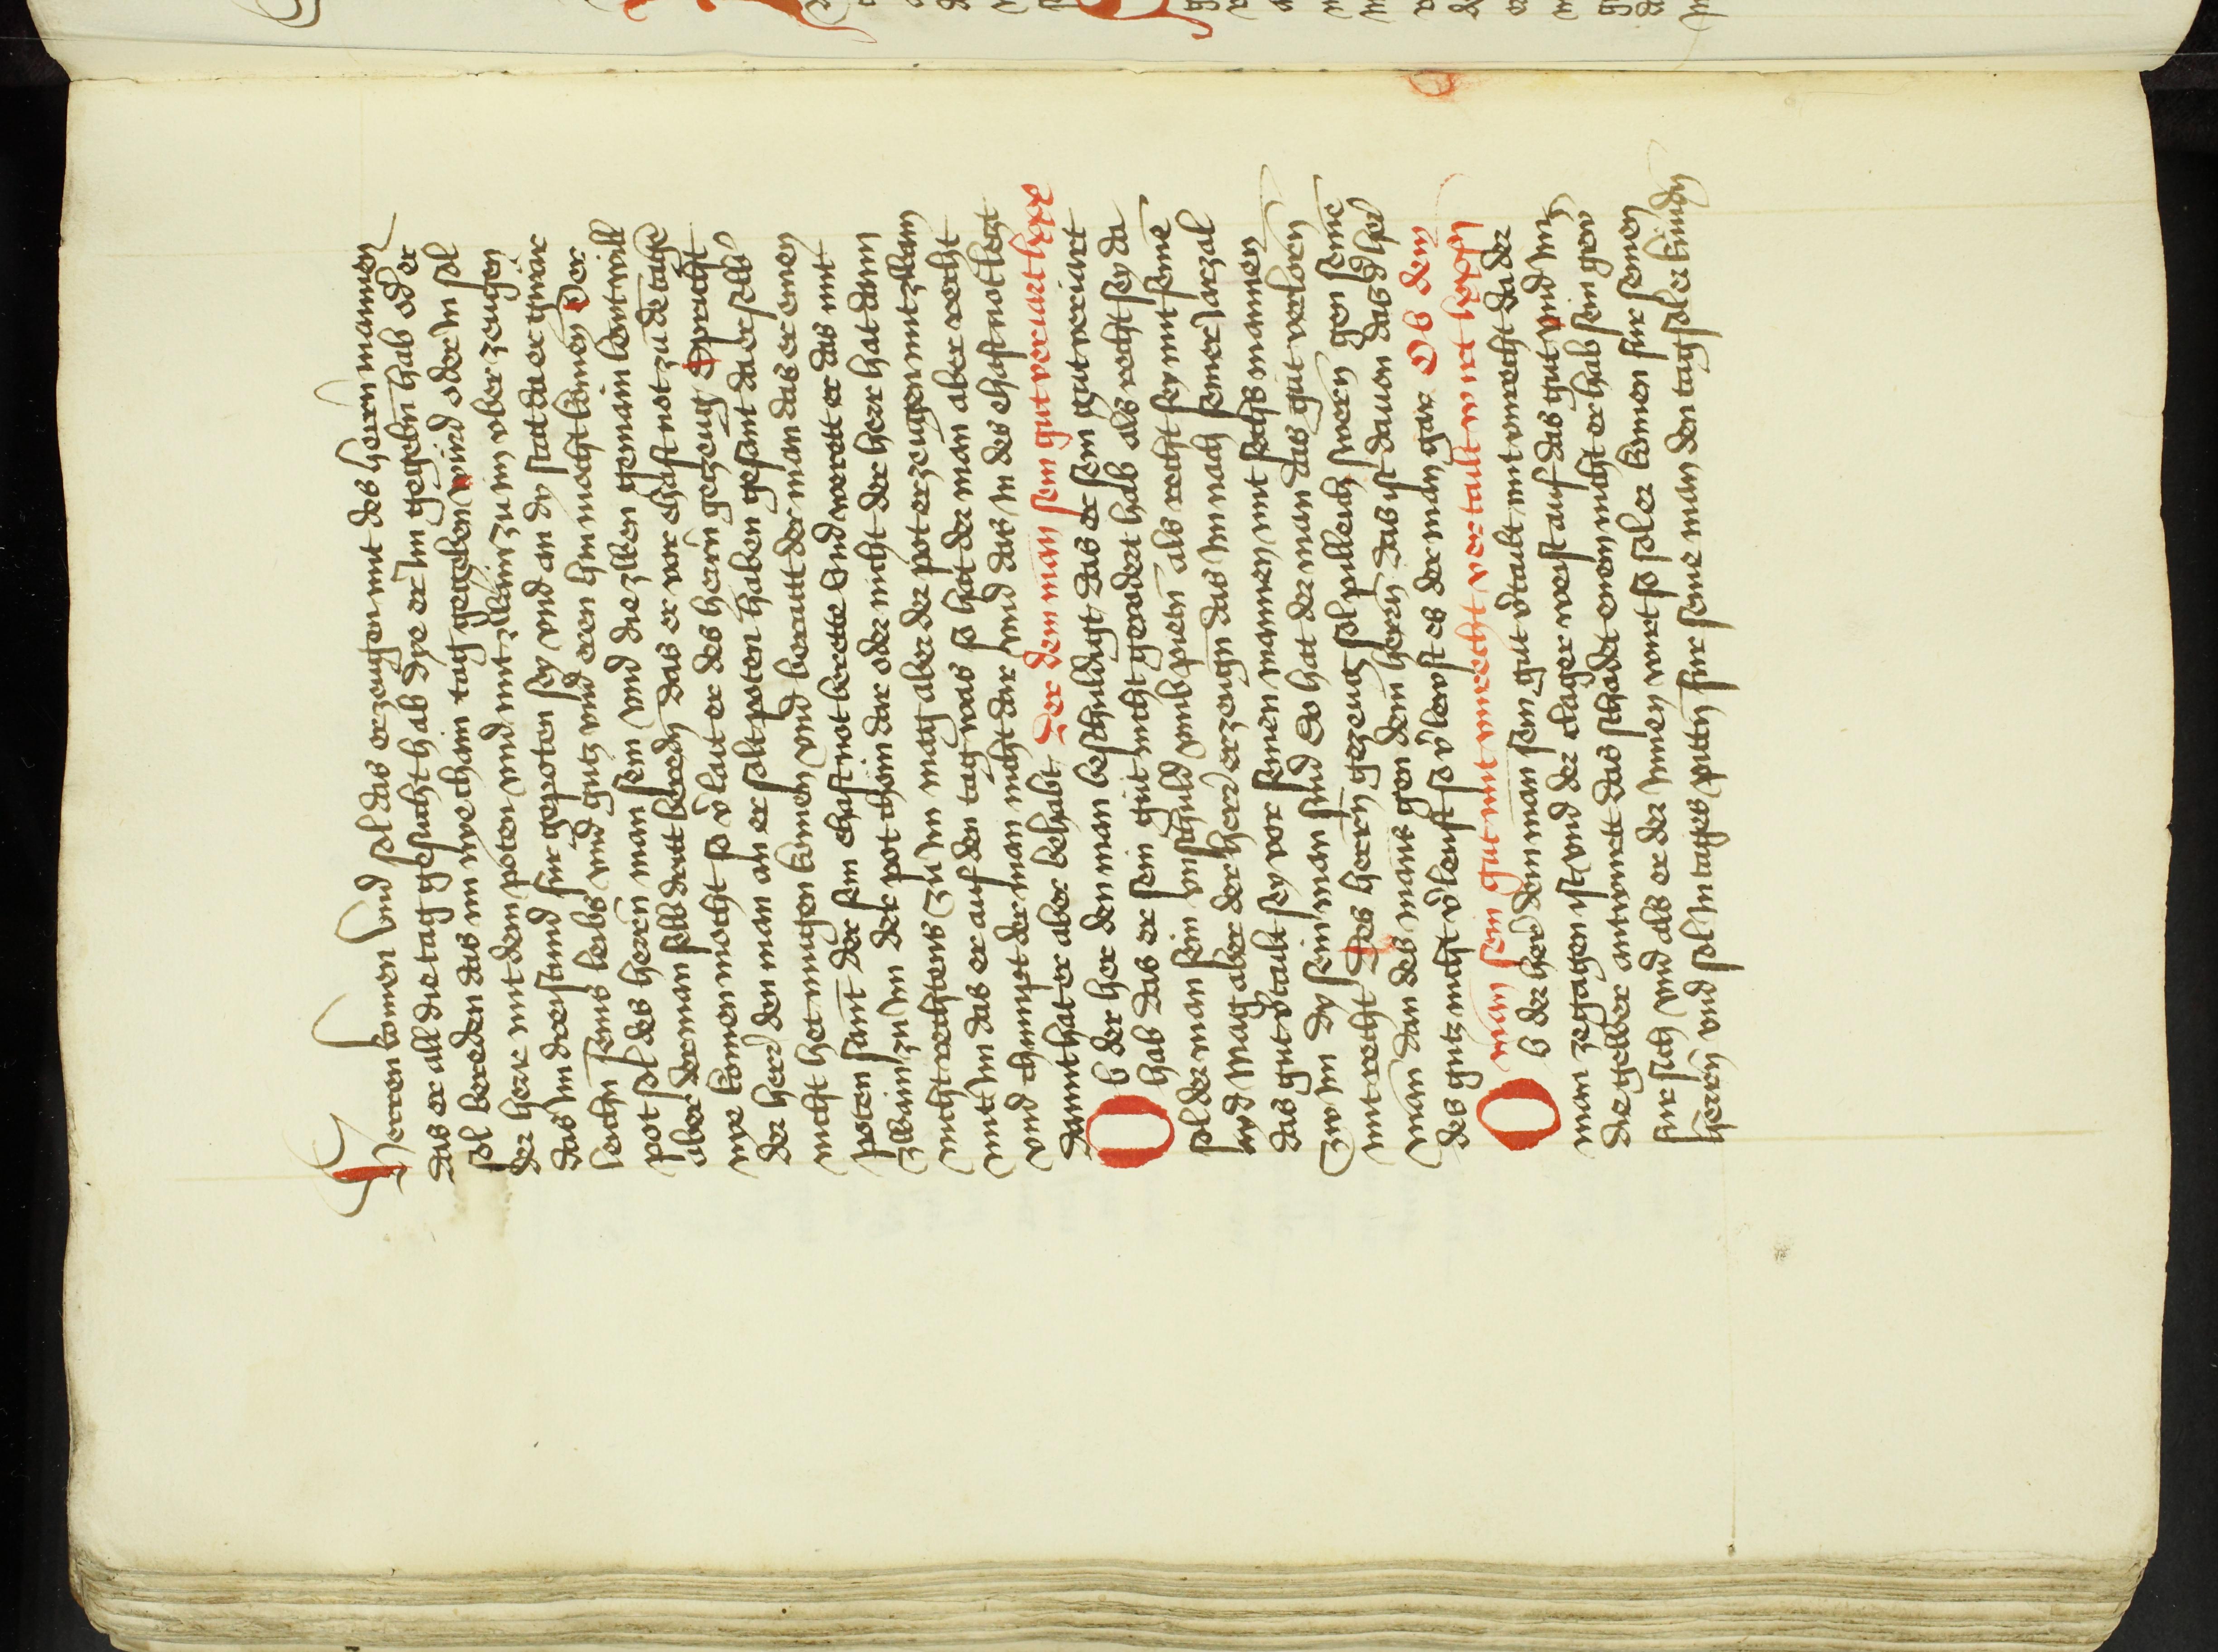 Herren komen vnd sol das erzeugen mit des herrn mannen
das er all die tag gesucht hab dye er Im gegebn hab od er
sol bereden das im nye chain tag gegeben wurd oder In sol
der herr mit dem poten vnd mit zllain zu im vber zeugen
das Im dreystund fur gepoten sey vnd an dy stat da er gwar
leichn seins leibs vnd gutz vnd eren hin mocht kumen Der
pot sol des herrn man sein vnd die zllen gemain lewt will
aber der man selb dritt beredn das er vor ehaft not zu de tage
nye komen mocht so v̓laut er des herrn gezeug Spricht
der herr den man an er solt poten haben gesant da er selb
nicht het mugen komen vnd berautt der man das er einen
poten sant der sein ehaft not berette Vnd werett er das mit
zllain zu Im der pot thom dar oder nicht der herr hat dann
nicht rechtens Zu Im mag aber der pot erzeugen mit zllain
mit Im das er auf den tag was so hat der man aber recht
vnd chumpt der man nicht dar vnd das In des ehaft not letzt
damit hat er aber behabt Der dem man sein gut veriart lxxx
Ob der her den man beschuldigt das er sein gut veriart
hab das er sein gut nicht geuodert hab als recht sey da
sol der man sein vnschuld vmb pieten als recht sey mit seine
ayd Mag aber der herr erzeugn das Im nach seiner Jarzal
das gut v̓tailt sey vor seinen mannen mit sechs mannen
Zw Im dy sein man sind So hat der man das gut verloren
mit recht Des herrn gezeug sol pilleich swern gen seine
man dan des mans gen dem herrn das ist dauon das d her
des gutz nicht v̓leust so v̓lewst es der man gar Ob dem
man sein gut mit vnrecht vertailt wirt lxxxj
Ob der herr dem man sein gut v̓tailt mit vnrecht da der
man zegagen ist vnd der clager weist auf das gut vnd Im
die gelber antwurtt das schadet einem nicht er hab sein gew
fur sich vnd als er der Innen wirt so sol er komen fur seinen
herrn vnd sol In tages pitten fur seine man den tag sol er kundn